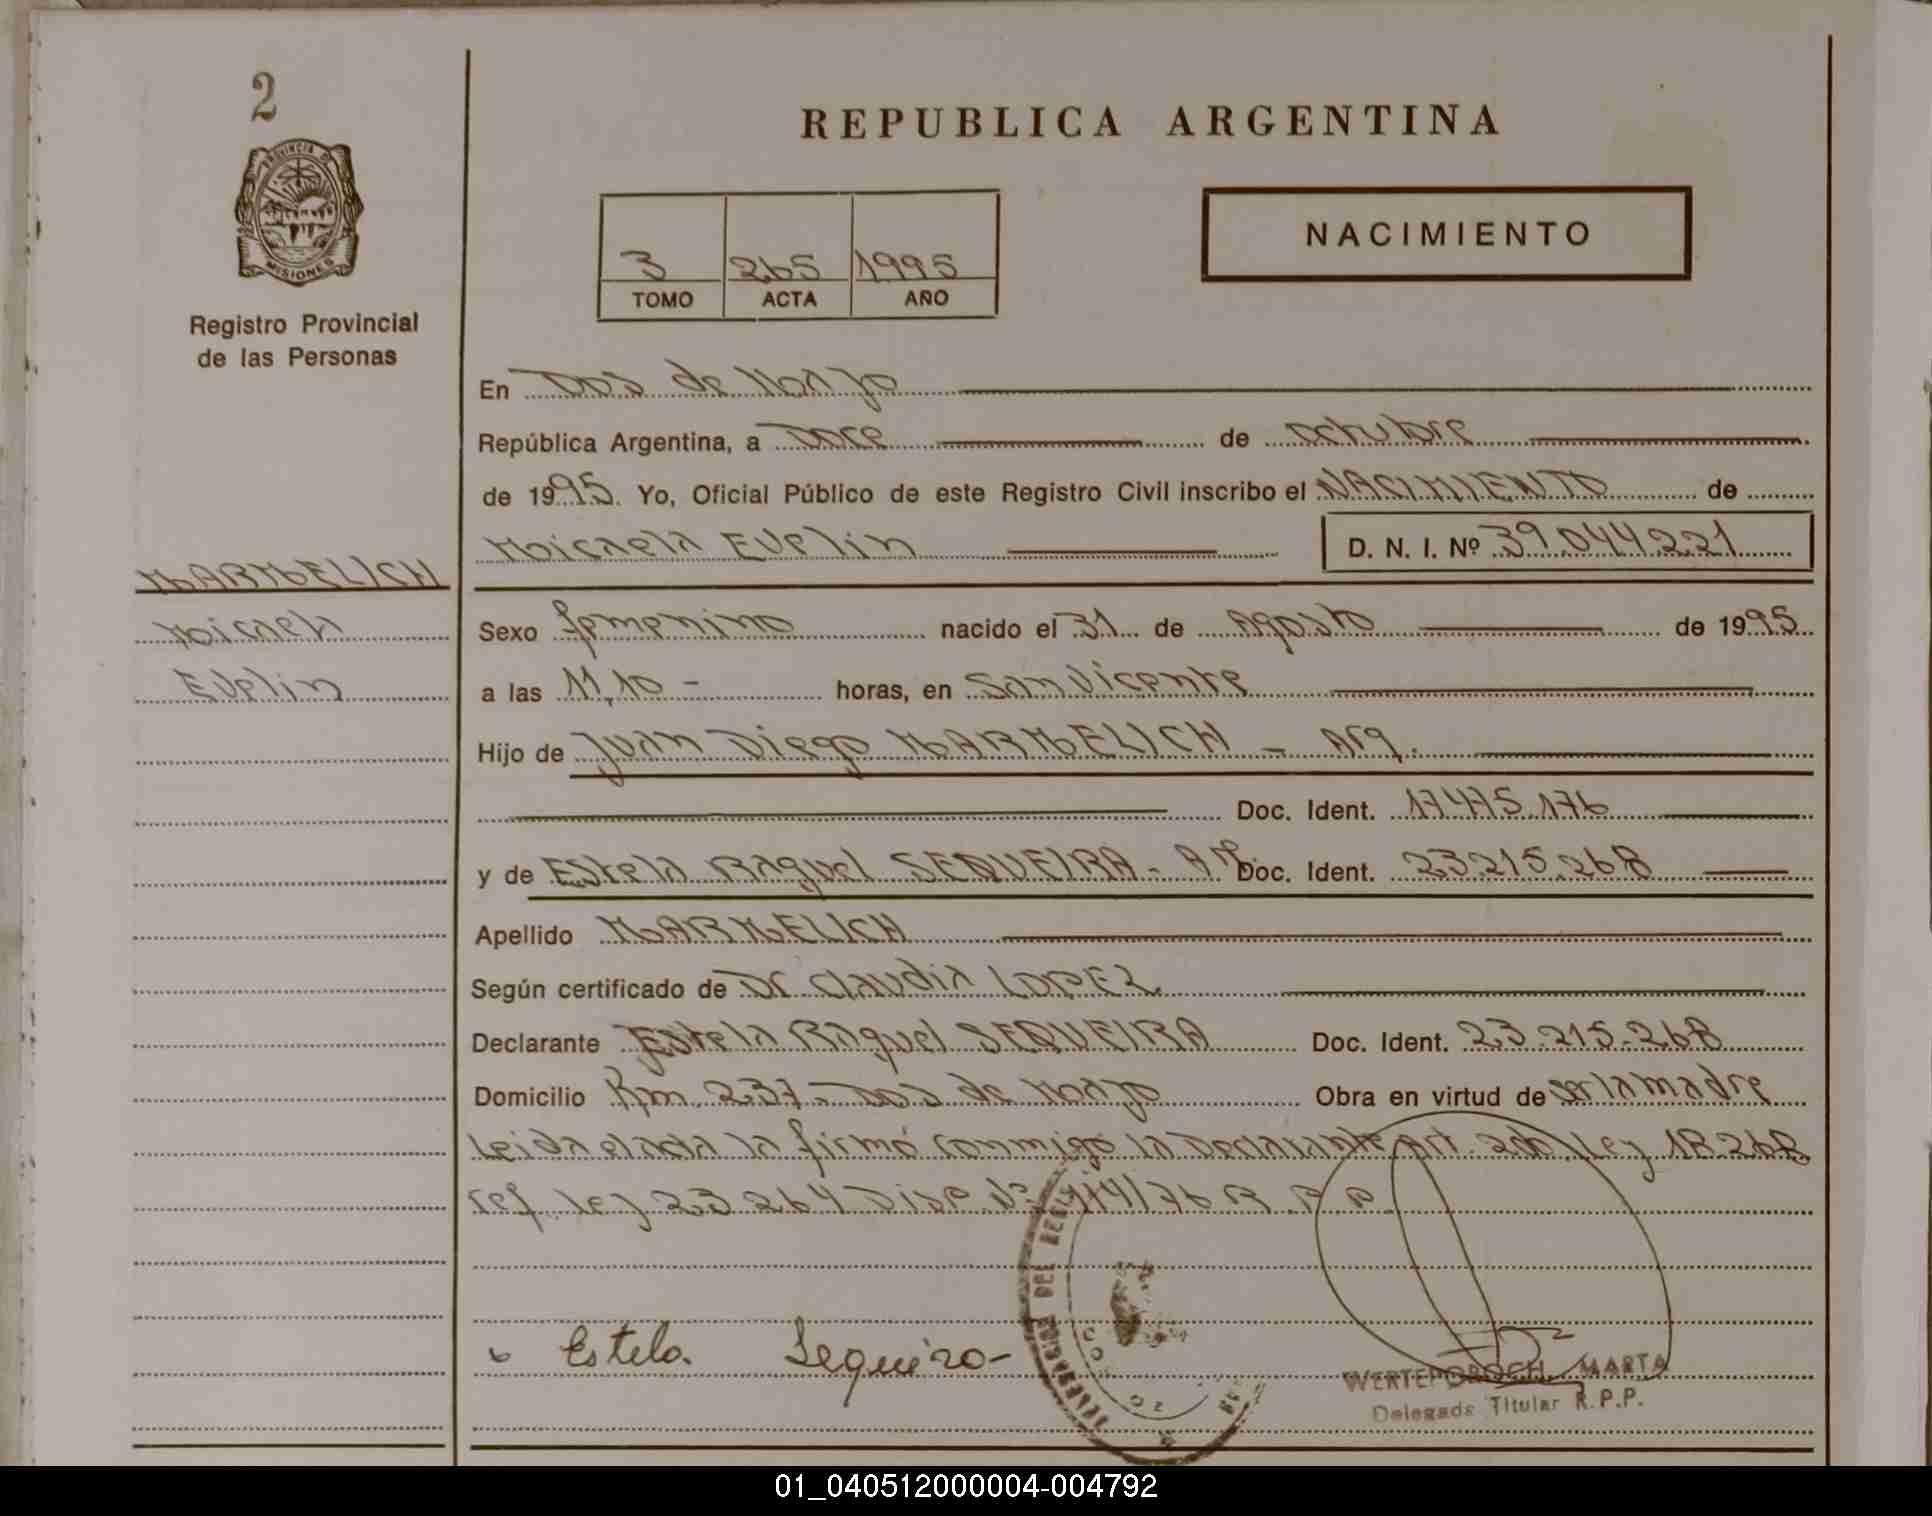 2
PROVINCIA DE
MISIONES
Registro Provincial
de las Personas
MARMELICH
Maicaela
Evelin
REPUBLICA ARGENTINA
3 265 1995
TOMO ACTA AÑO
NACIMIENTO
En Dos de Mayo
República Argentina, a Doce de octubre
de 1995. Yo, Oficial Público de este Registro Civil inscribo el NACIMIENTO de
Maicaela Evelin D. N. I. Nº 39.044.221
Sexo femenino nacido el 31 de Agosto de 1995
a las 11,10 - horas, en San Vicente
Hijo de Juan Diego MARMELICH - Arg.
Doc. Ident. 17475.176
y de Estela Raquel SEQUEIRA - Doc. Ident. 23.215.268
Apellido MARMELICH
Según certificado de Dr Claudia LOPEZ
Declarante Estela Raquel SEQUEIRA Doc. Ident. 23.215.268
Domicilio Km 237 - Dos de Mayo Obra en virtud de ser la madre
Leida el acta la firmó conmigo la Declarante Art. 2do Ley 18.268
ref. ley 23.264 Disp. Nº /76 R.P.P.
Estela Sequeira
WERTEPOROCH, MARTA
Delegada Titular R.P.P.
01_040512000004-004792